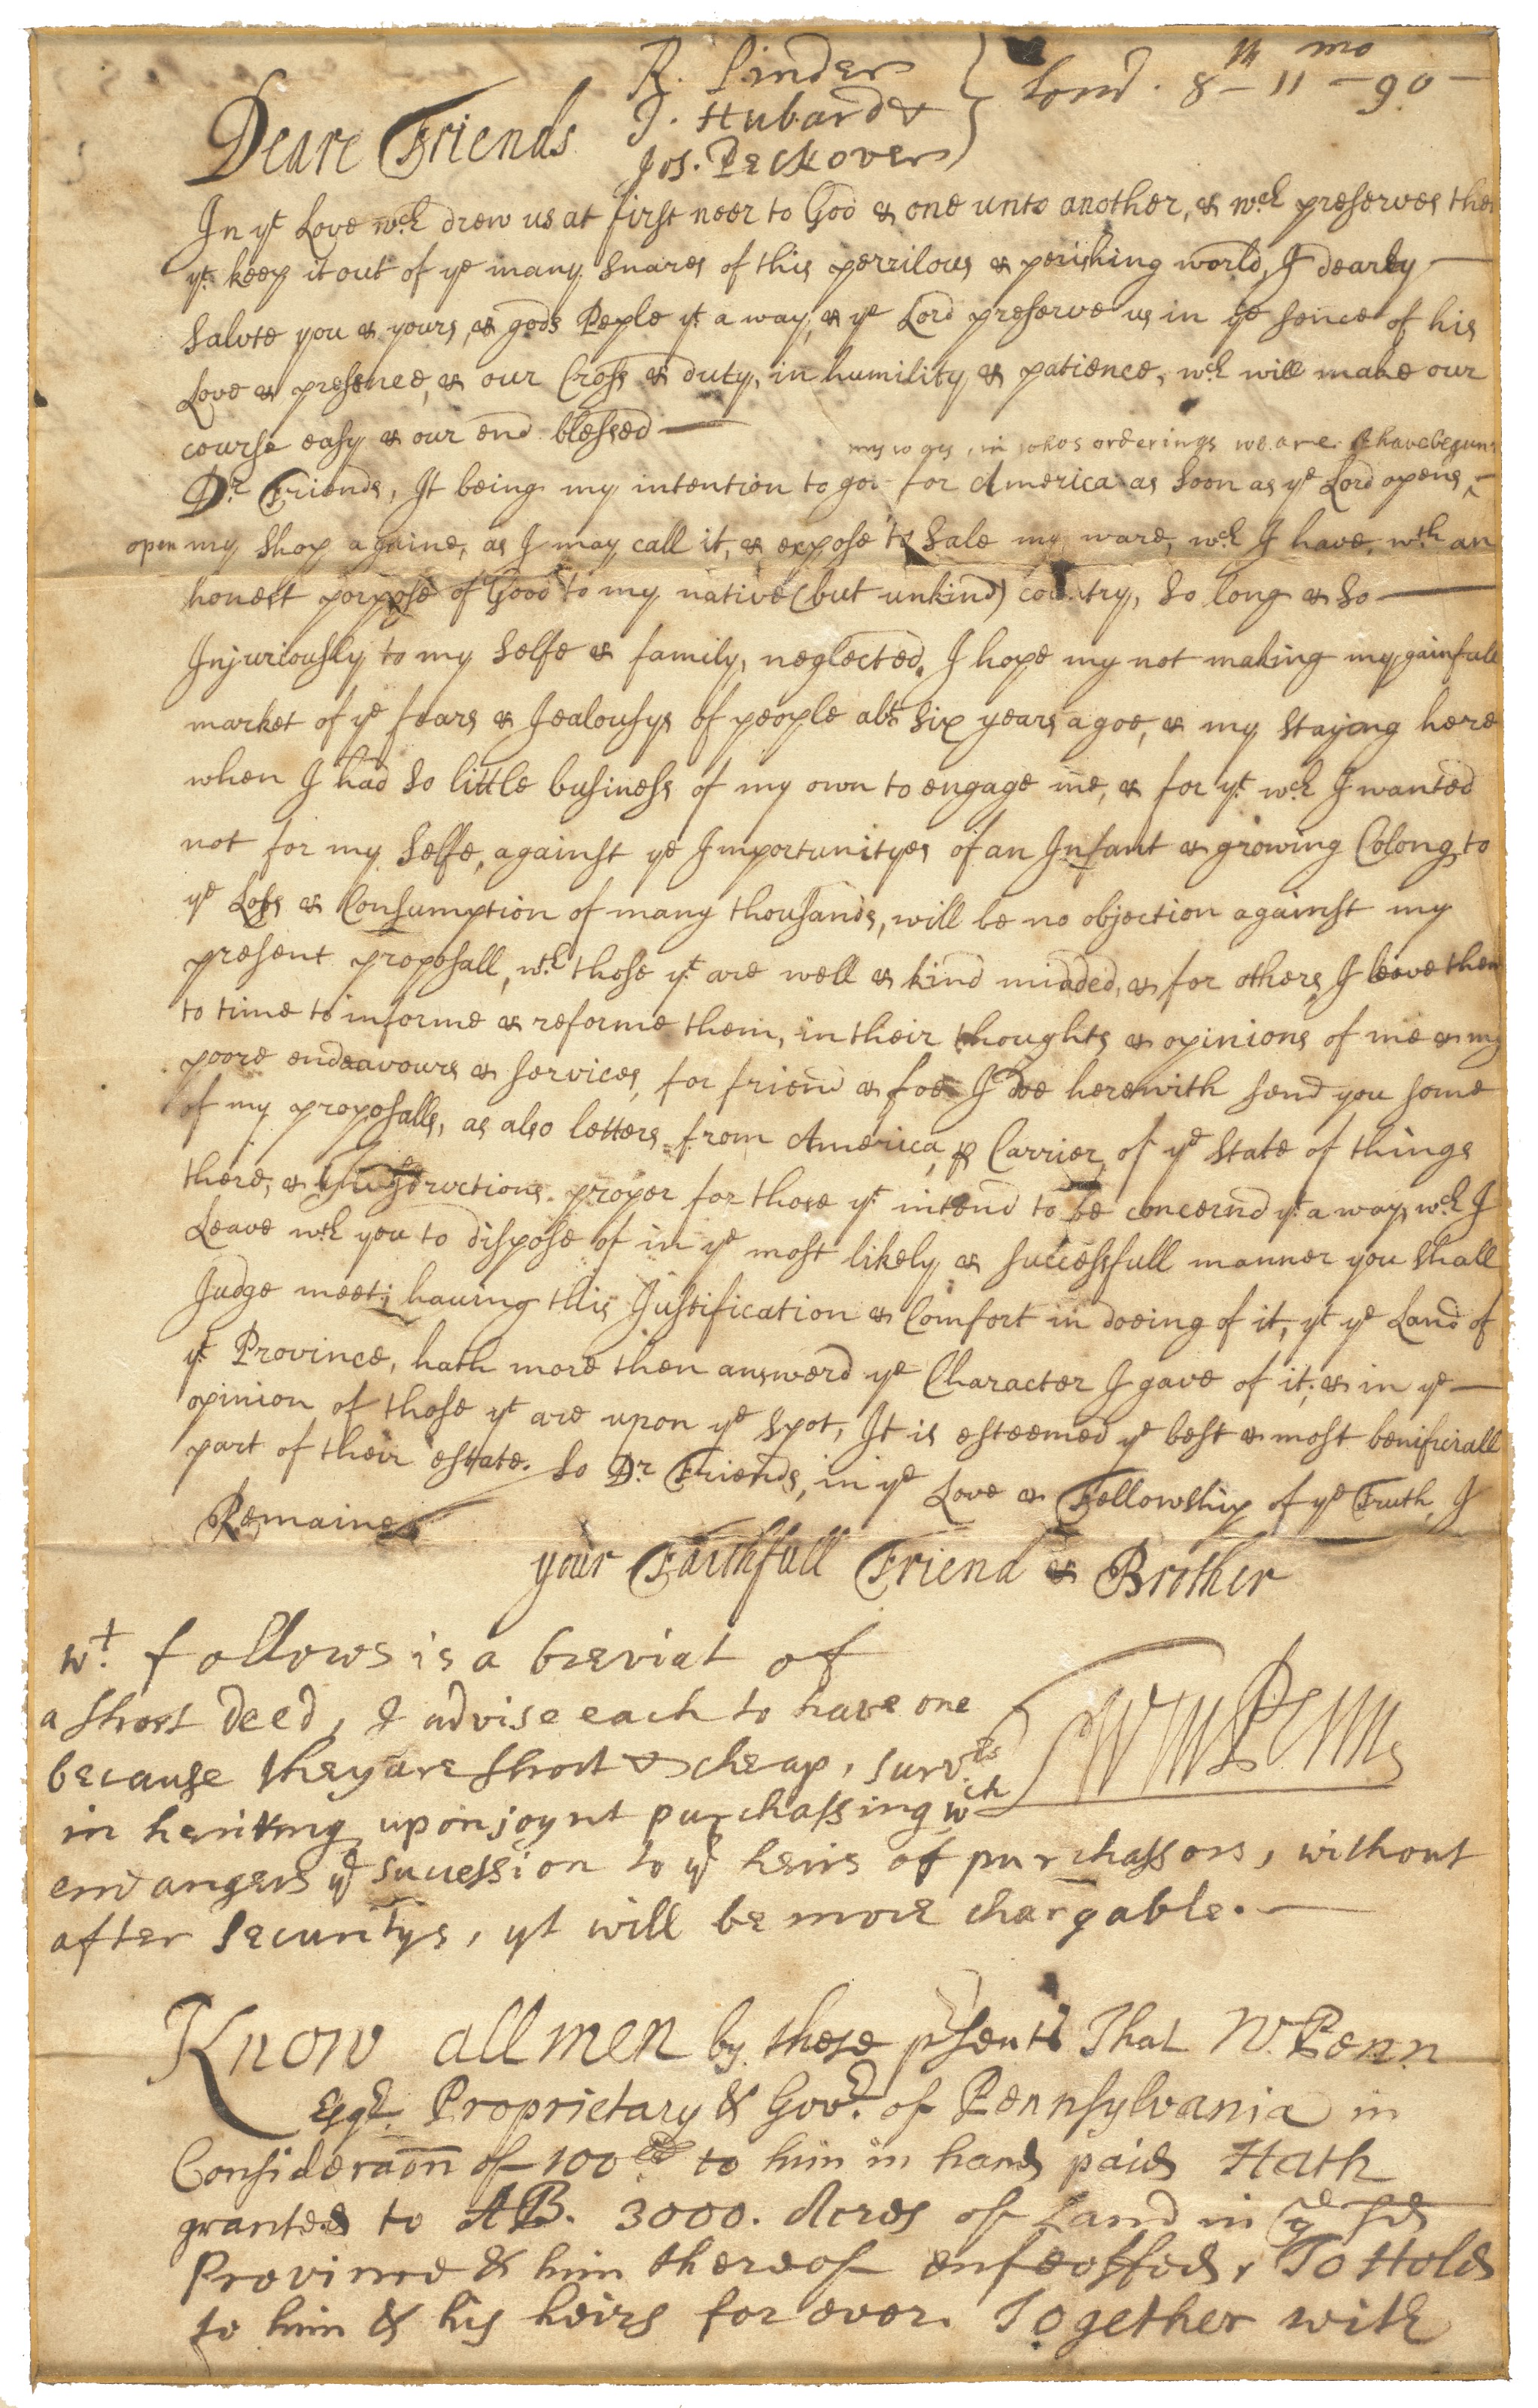 R. Pinder
J. Hubard &
Jos. Peckover
Lond. 8th 11mo 90
Deare Friends
In yt Love wch drew us at first neer to God & one unto another, & wch preserves them
yt keep it out of ye many snares of this perrilous & perishing world, I dearly
Salute you & yours, & gods Peple yt a way, & ye Lord preserve us in ye sence of his
Love & presence, & our Cross & duty, in humility & patience, wch will make our
course easy & our end blessed
my way, in whos orderings we are & have begun to
Dr Friends, It being my intention to goe for America as soon as ye Lord opens
open my shop againe, as I may call it, & expose to sale my ware, wch I have, wth an
honest porpose of Good to my native (but unkind) country, so long & so
Injuriously to my selfe & family, neglected. I hope my not making my gainfull
market of ye fears & Jealousys of people abt six years agoe, & my staying here
when I had so little business of my own to engage me, & for yt wch I wanted
not for my selfe, against ye Importunityes of an Infant & growing Colony, to
ye Loss & Consumption of many thousands, will be no objection against my
present proposall, wth those yt are well & kind minded, & for others, I leave them
to time to informe & reforme them, in their thoughts & opinions of me & my
poore endeavours & services, for friend & foe I doe herewith send you some
of my proposalls, as also letters from America, p Carrier, of ye state of things
there, & Instructions proper for those yt intend to be concernd yt a way, wch I
Leave wth you to dispose of in ye most likely & successfull manner you shall
Judge meet; having this Justification & Comfort in doeing of it, yt ye Land of
yt Province, hath more then answerd ye Character I gave of it; & in ye
opinion of those yt are upon ye spot, It is esteemed ye best & most benificiall
part of their estate. So Dr Friends, in ye Love & Fellowship of ye Truth, I
Remaine
your Faithfull Friend & Brother
Wm Penn
wt follows is a breviat of
a short deed, I advise each to have one
because they are short & cheap, survrs
inheriting upon joynt purchassing wch
endangers ye sucession to ye heirs of purchassors, without
after securitys, yt will be more chargable.
Know all men by these psents That W. Penn
Esqr. Proprietary & Govr. of Pennsylvania in
Consideraon of 100ld to him in hand paid Hath
granted to AB. 3000. Acres of Land in ye sd
Province & him thereof enfeoffed, To Hold
to him & his heirs for ever. Together with